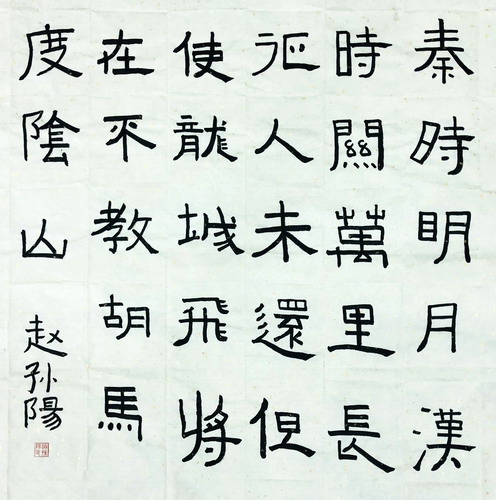 秦時明月漢
時關萬里長
征人未還但
使龍城飛將
在不教胡馬
度陰山
赵孙陽